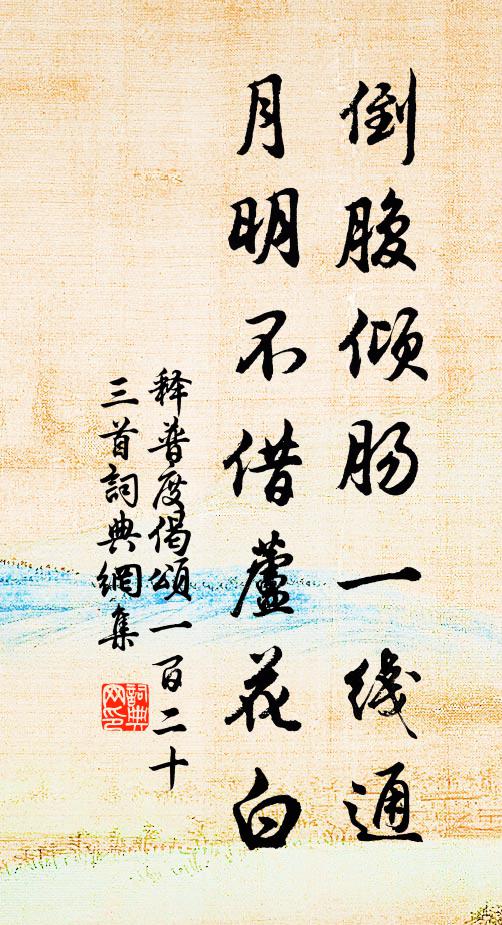 倒腹倾肠一线通
月明不借蘆花白
释普度偈頌一百二十
三首詞典網集
詞典
网印